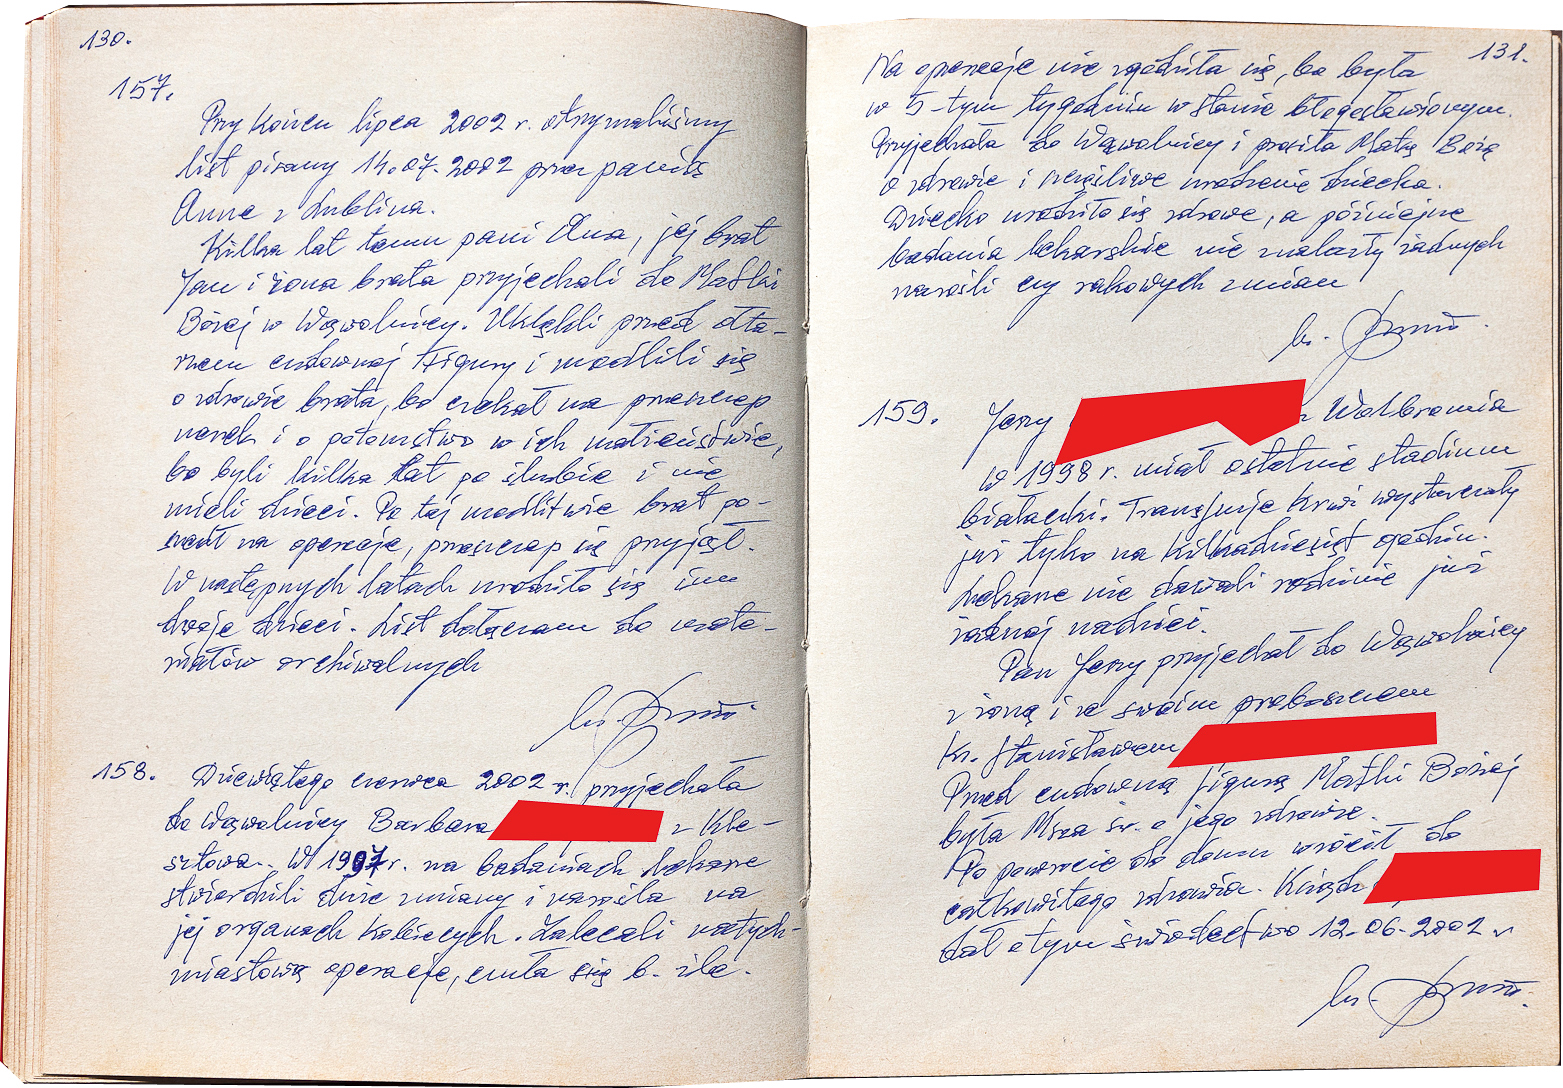 130.
157.
Przy końcu lipca 2002 r. otrzymaliśmy
list pisany 14.07.2002 przez panią
Annę z Lublina.
Kilka lat temu pani Anna, jej brat
Jan i żona brata przyjechali do Matki
Bożej w Wąwolnicy. Uklękli przed ołta-
rzem cudownej Figury i modlili się
o zdrowie brata, bo czekał na przeszczep
nerek i o potomstwo w ich małżeństwie,
bo byli kilka lat po ślubie i nie
mieli dzieci. Po tej modlitwie brat po-
szedł na operację, przeszczep się przyjął.
W następnych latach urodziło się im
dwoje dzieci. List dołączam do mate-
riałów archiwalnych
ks.
158. Dziewiątego czerwca 2002 r. przyjechała
do Wąwolnicy Barbara z Kle-
sztowa. W 1997 r. na badaniach lekarze
stwierdzili duże zmiany i narośla na
jej organach kobiecych. Zalecali natych-
miastową operację, czuła się b. źle.
131.
Na operację nie zgodziła się, bo była
w 5-tym tygodniu w stanie błogosławionym.
Przyjechała do Wąwolnicy i prosiła Matkę Bożą
o zdrowie i szczęśliwe urodzenie dziecka.
Dziecko urodziło się zdrowe, a późniejsze
badania lekarskie nie znalazły żadnych
narośli czy rakowych zmian
ks.
159. Jerzy z Wolbromia
w 1998 r. miał ostatnie stadium
białaczki. Transfuzje krwi wystarczały
już tylko na kilkadziesiąt godzin.
Lekarze nie dawali rodzinie już
żadnej nadziei.
Pan Jerzy przyjechał do Wąwolnicy
z żoną i ze swoim proboszczem
Ks. Stanisławem
Przed cudowną figurą Matki Bożej
była Msza św. o jego zdrowie.
Po powrocie do domu wrócił do
całkowitego zdrowia. Ksiądz
dał o tym świadectwo 12.06.2002 r.
ks.